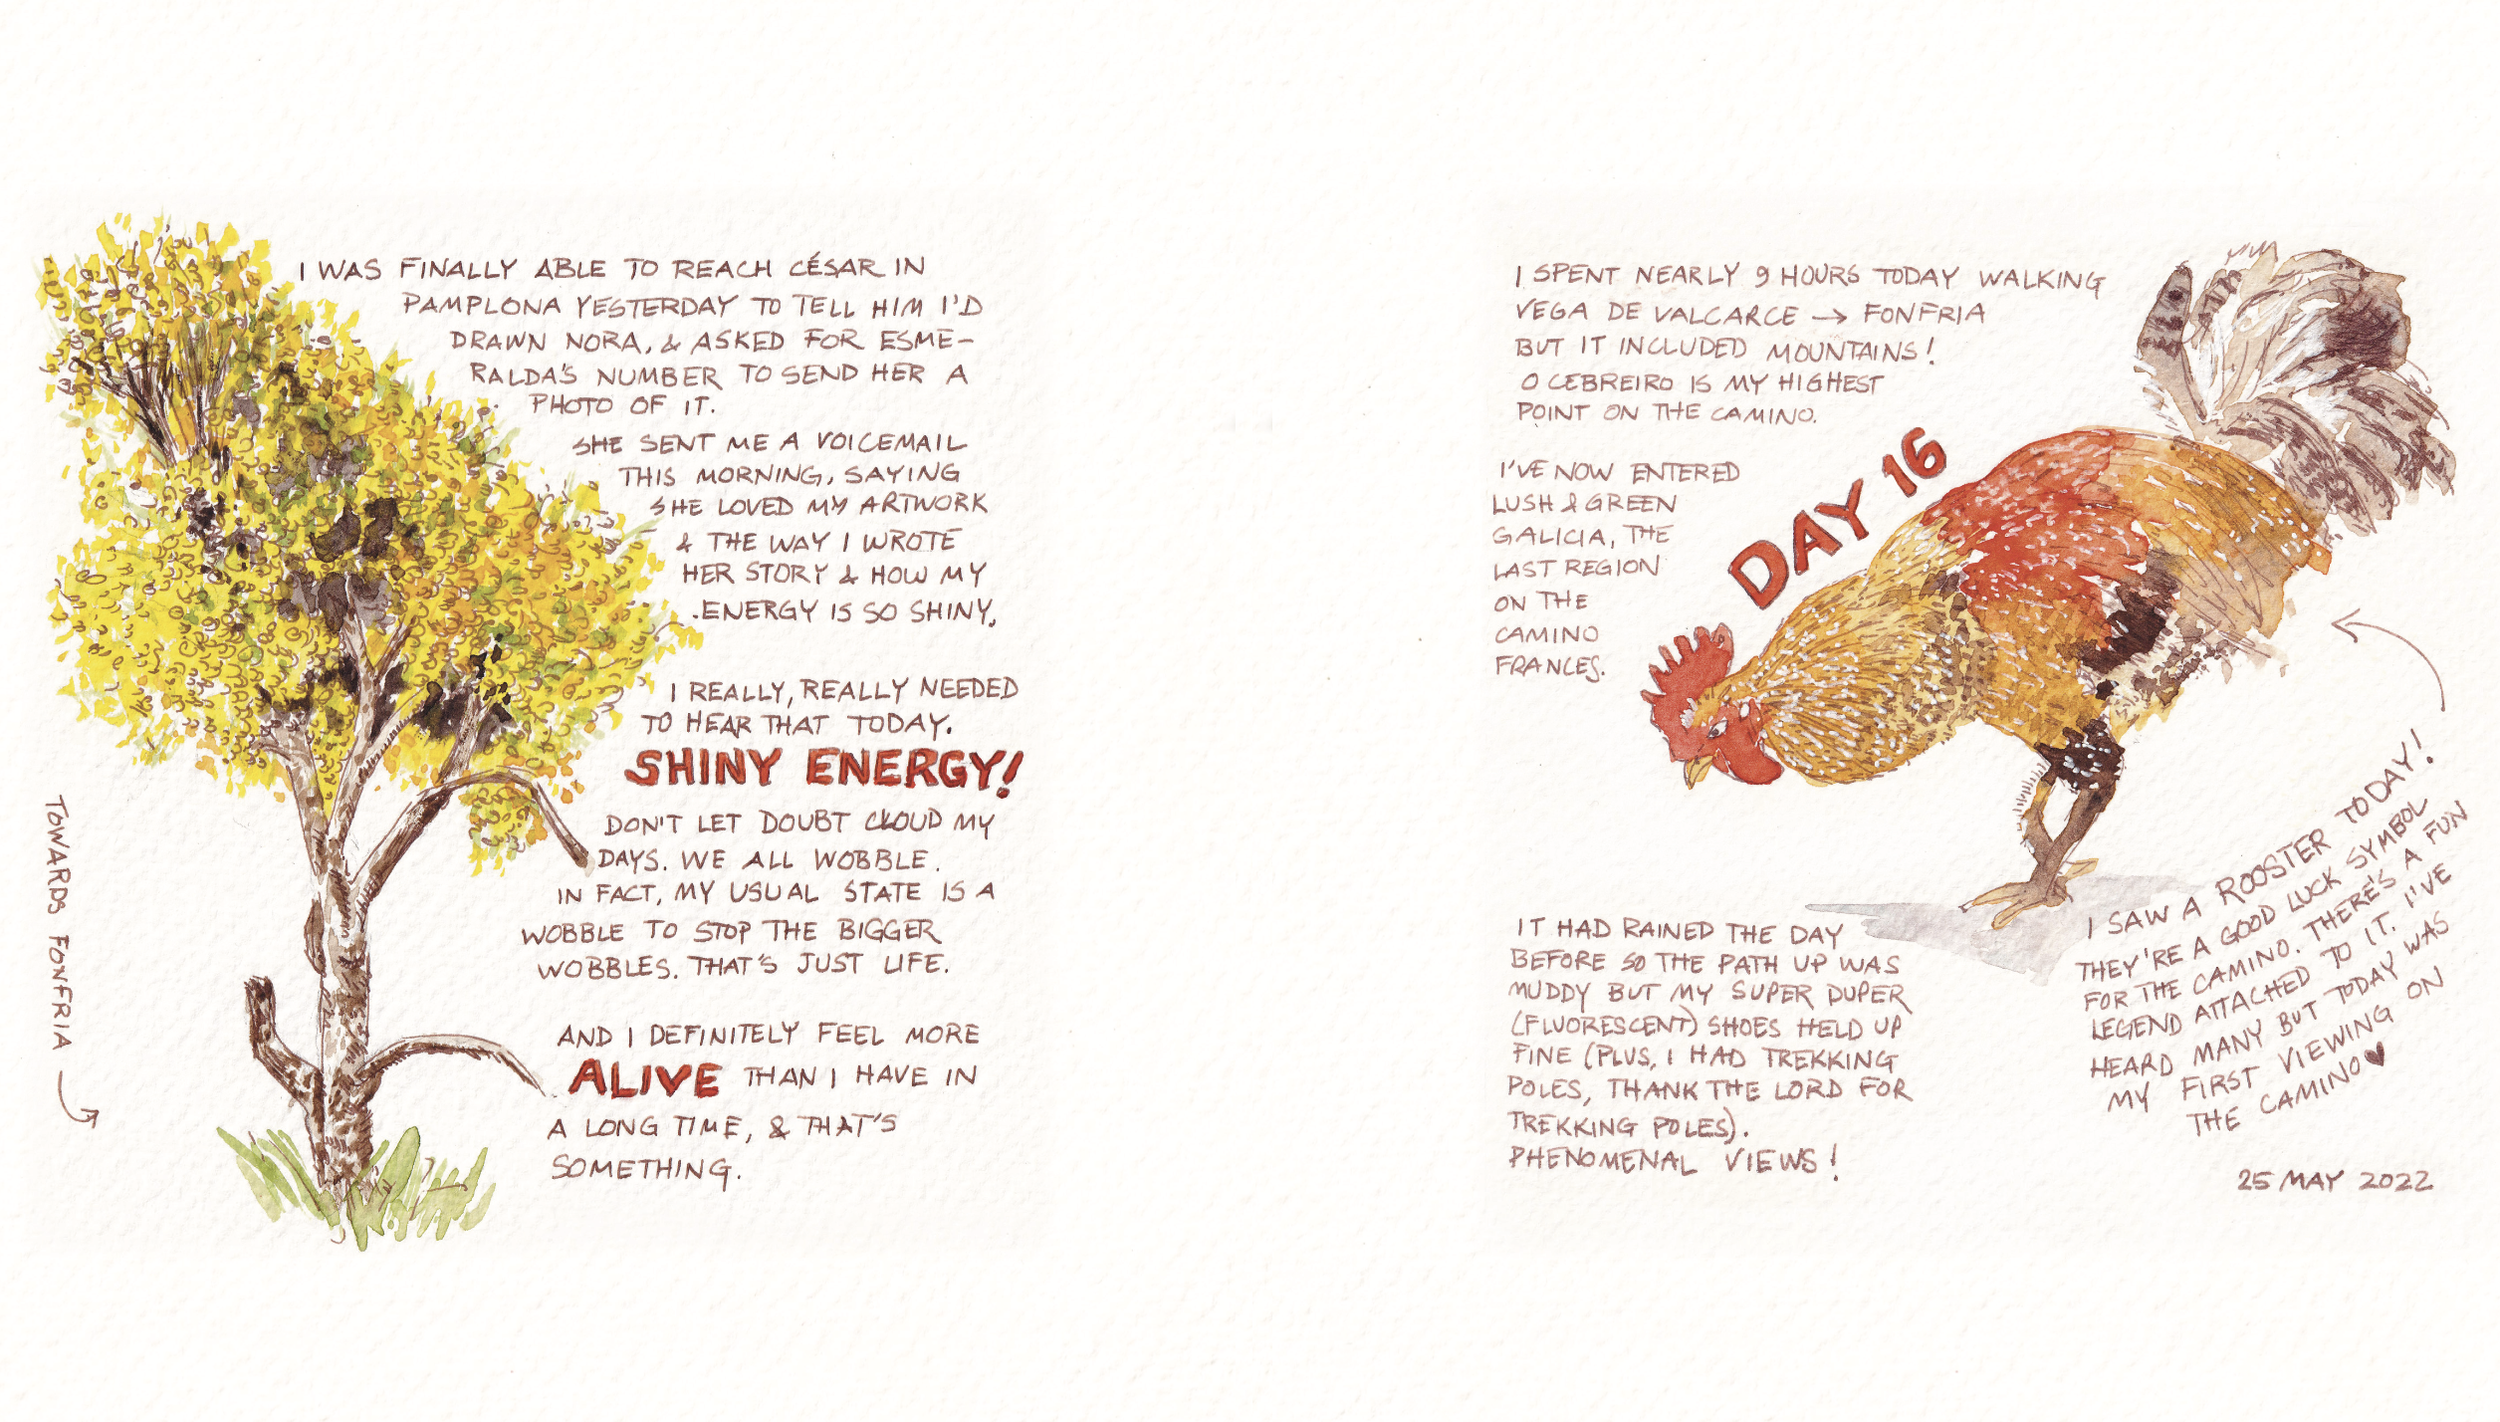 I WAS FINALLY ABLE TO REACH CÉSAR IN
PAMPLONA YESTERDAY TO TELL HIM I'D
DRAWN NORA, & ASKED FOR ESME-
RALDA'S NUMBER TO SEND HER A
PHOTO OF IT.
SHE SENT ME A VOICEMAIL
THIS MORNING, SAYING
SHE LOVED MY ARTWORK
& THE WAY I WROTE
HER STORY & HOW MY
ENERGY IS SO SHINY.
I REALLY, REALLY NEEDED
TO HEAR THAT TODAY.
SHINY ENERGY!
DON'T LET DOUBT CLOUD MY
DAYS. WE ALL WOBBLE.
IN FACT, MY USUAL STATE IS A
WOBBLE TO STOP THE BIGGER
WOBBLES. THAT'S JUST LIFE.
AND I DEFINITELY FEEL MORE
ALIVE THAN I HAVE IN
A LONG TIME, & THAT'S
SOMETHING.
TOWARDS FONFRIA
I SPENT NEARLY 9 HOURS TODAY WALKING
VEGA DE VALCARCE → FONFRIA
BUT IT INCLUDED MOUNTAINS!
O CEBREIRO IS MY HIGHEST
POINT ON THE CAMINO.
I'VE NOW ENTERED
LUSH & GREEN
GALICIA, THE
LAST REGION
ON THE
CAMINO
FRANCES.
DAY 16
IT HAD RAINED THE DAY
BEFORE SO THE PATH UP WAS
MUDDY BUT MY SUPER DUPER
(FLUORESCENT) SHOES HELD UP
FINE (PLUS, I HAD TREKKING
POLES, THANK THE LORD FOR
TREKKING POLES).
PHENOMENAL VIEWS!
I SAW A ROOSTER TODAY!
THEY'RE A GOOD LUCK SYMBOL
FOR THE CAMINO. THERE'S A FUN
LEGEND ATTACHED TO IT. I'VE
HEARD MANY BUT TODAY WAS
MY FIRST VIEWING ON
THE CAMINO♥
25 MAY 2022